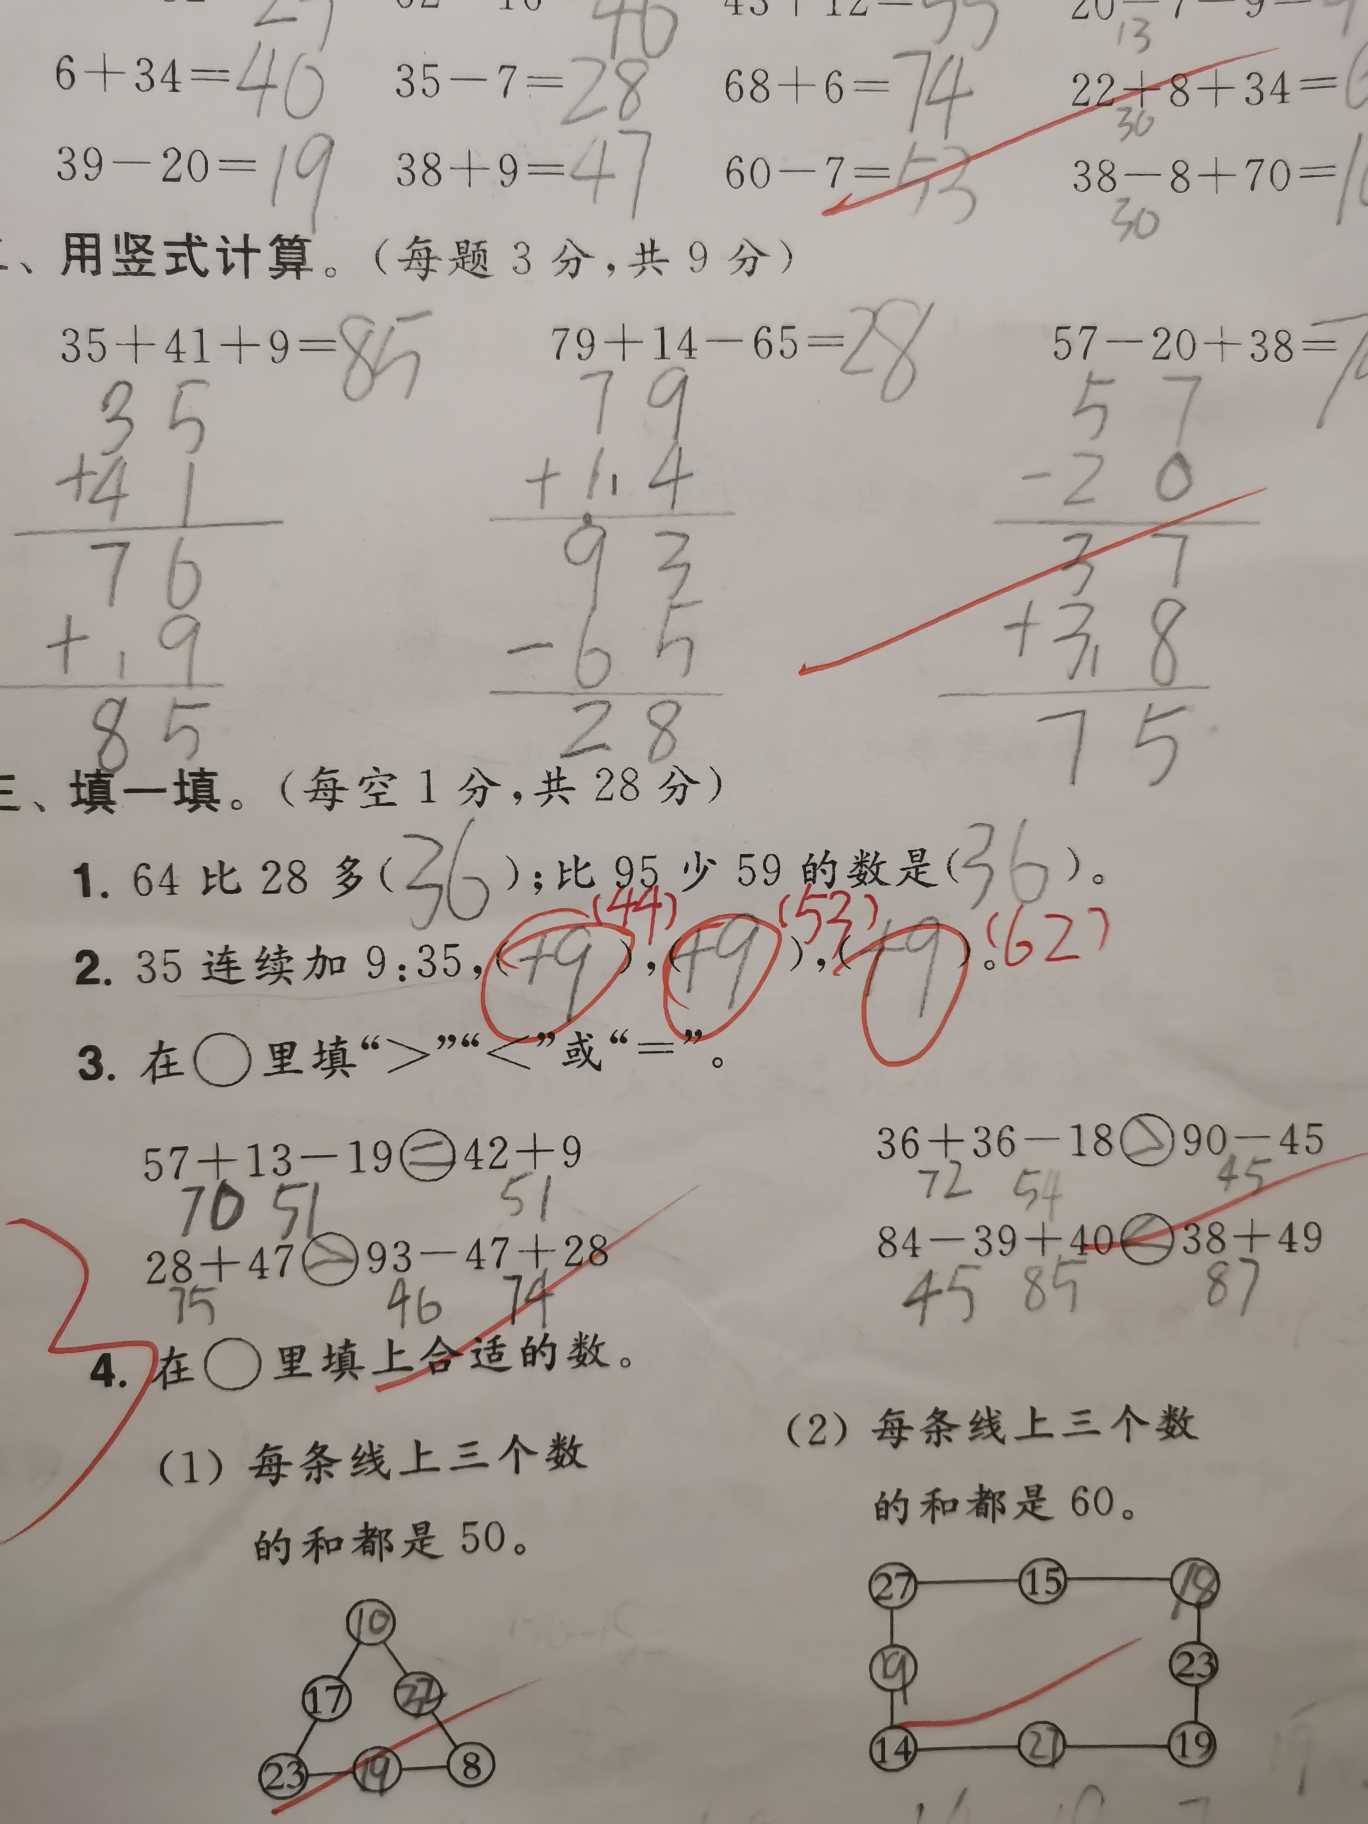 6+34=40 35-7=28 68+6=74 22+8+34=
30
39-20=19 38+9=47 60-7=53 38-8+70=
30
、用竖式计算。(每题 3 分,共 9 分)
35+41+9=85 79+14-65=28 57-20+38=
3 5 7 9 5 7
+4 1 +1 1 4 -2 0
7 6 9 3 3 7
+ 1 9 -6 5 +3 1 8
8 5 2 8 7 5
三、填一填。(每空 1 分,共 28 分)
1. 64 比 28 多(36);比 95 少 59 的数是(36)。
(44) (53) (62)
2. 35 连续加 9:35,(+9),(+9),(+9)。
3. 在○里填“>”“<”或“=”。
57+13-19=42+9 36+36-18>90-45
70 51 51 72 54 45
28+47>93-47+28 84-39+40<38+49
75 46 74 45 85 87
3
4. 在○里填上合适的数。
(1) 每条线上三个数 (2) 每条线上三个数
的和都是 50。 的和都是 60。
27 15 18
10
19 23
17 32
14 21 19
23 19 8